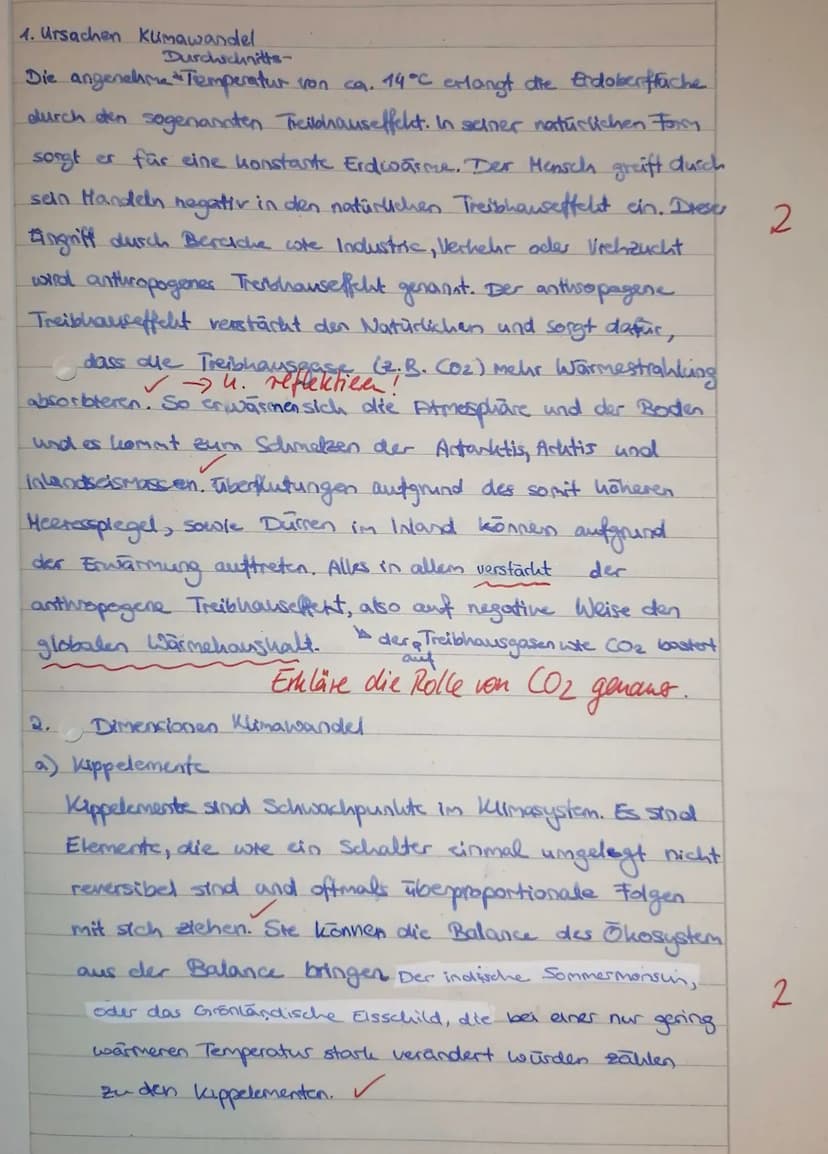 1. Ursachen Klimawandel
Durchschnitts-
Die angenehme Temperatur von ca. 14°C erlangt die Erdoberfläche
durch den sogenannten Treibhauseffekt. In seiner natürlichen Form
sorgt er für eine konstante Erdwärme. Der Mensch greift durch
sein Handeln negativ in den natürlichen Treibhauseffekt ein. Dieser
2
Eingriff durch Bereiche wie Industrie, Verkehr oder Viehzucht
wird anthropogenes Treibhauseffekt genannt. Der anthropogene
Treibhauseffekt verstäckt den Natürlichen und sorgt dafür,
dass die Treibhausgase (z.B. CO2) mehr Wärmestrahlung
✓ → u. reflektieren!
absorbieren. So erwärmen sich die Atmosphäre und der Boden
und es kommt zum Schmelzen der Actarktis, Arktis und
✓
Inlandseismassen. Überflutungen aufgrund des somit höheren
Meeresspiegel, sowie Dürren im Inland können aufgrund
der Erwärmung auftreten. Alles in allem verstäckt der
anthropogene Treibhauseffekt, also auf negative Weise den
globalen Wärmehaushalt. ↳ der auf Treibhausgasen wie CO2 basiert
Erkläre die Rolle von CO2 genauer.
2. Dimensionen Klimawandel
a) Kippelemente
Kippelemente sind Schwachpunkte im Klimasystem. Es sind
Elemente, die wie ein Schalter einmal umgelegt nicht
reversibel sind und oftmals überproportionale Folgen
mit sich ziehen. ✓ Sie können die Balance des Ökosystem
aus der Balance bringen. Der indische Sommermonsun,
2
oder das Grönländische Eisschild, die bei einer nur gering
wärmeren Temperatur stark verändert würden zählen
zu den Kippelementen. ✓